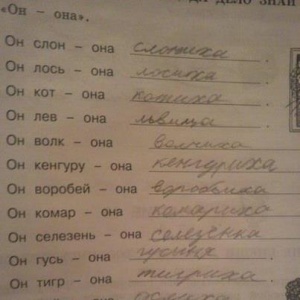 ДЕЛО ЗНАЙ
«Он – она».
Он слон – она слониха.
Он лось – она лосиха.
Он кот – она котиха.
Он лев – она львица.
Он волк – она волчиха
Он кенгуру – она кенгуриха
Он воробей – она воробьиха
Он комар – она комариха
Он селезень – она селезёнка
Он гусь – она гусиха
Он тигр – она тигриха